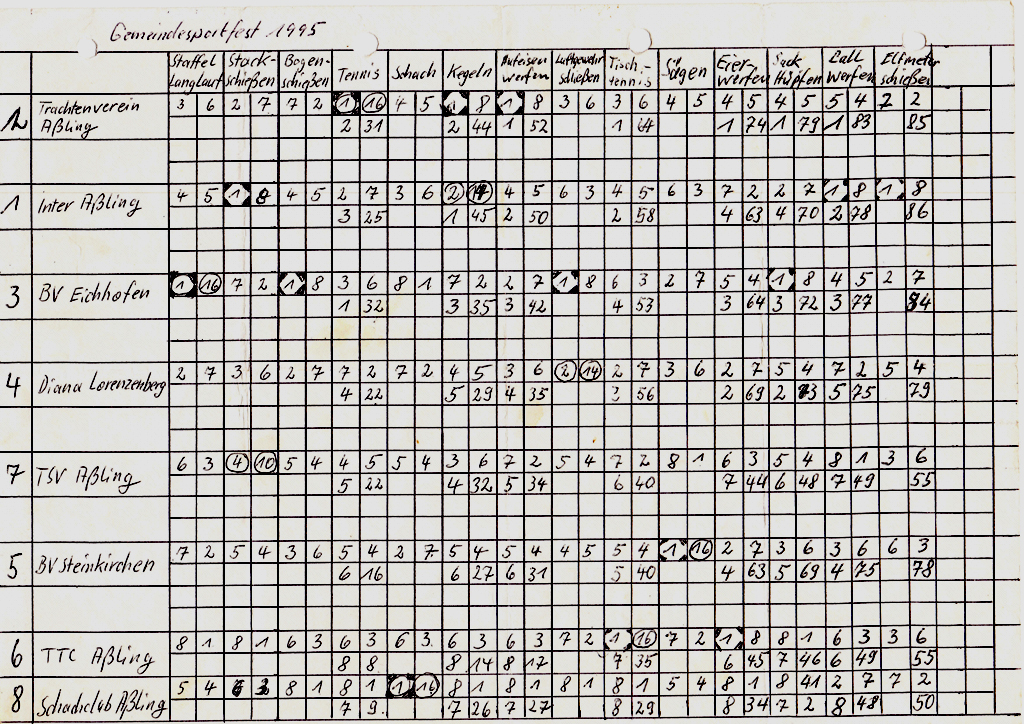 Gemeindesportfest 1995
Staffel Langlauf Stock-schießen Bogen-schießen Tennis Schach Kegeln Hufeisen werfen Luftgewehr schießen Tisch-tennis Sägen Eier-werfen Sack Hüpfen Ball werfen Elfmeter schießen
2 Trachtenverein Aßling 3 6 2 7 7 2 1 16 4 5 1 8 1 8 3 6 3 6 4 5 4 5 4 5 5 4 7 2
2 31 2 44 1 52 1 64 1 74 1 79 1 83 85
1 Inter Aßling 4 5 1 8 4 5 2 7 3 6 2 14 4 5 6 3 4 5 6 3 7 2 2 7 1 8 1 8
3 25 1 45 2 50 2 58 4 63 4 70 2 78 86
3 BV Eichhofen 1 16 7 2 1 8 3 6 8 1 7 2 2 7 1 8 6 3 2 7 5 4 1 8 4 5 2 7
1 32 3 35 3 42 4 53 3 64 3 72 3 77 84
4 Diana Lorenzenberg 2 7 3 6 2 7 7 2 7 2 4 5 3 6 2 14 2 7 3 6 2 7 5 4 7 2 5 4
4 22 5 29 4 35 3 56 2 69 2 73 5 75 79
7 TSV Aßling 6 3 4 10 5 4 4 5 5 4 3 6 7 2 5 4 7 2 8 1 6 3 5 4 8 1 3 6
5 22 4 32 5 34 6 40 7 44 6 48 7 49 55
5 BV Steinkirchen 7 2 5 4 3 6 5 4 2 7 5 4 5 4 4 5 5 4 1 16 2 7 3 6 3 6 6 3
6 16 6 27 6 31 5 40 4 63 5 69 4 75 78
6 TTC Aßling 8 1 8 1 6 3 6 3 6 3 6 3 6 3 7 2 1 16 7 2 1 8 8 1 6 3 3 6
8 8 8 14 8 17 7 35 6 45 7 46 6 49 55
8 Schachclub Aßling 5 4 6 3 8 1 8 1 1 16 8 1 8 1 8 1 8 1 5 4 8 1 8 41 2 7 7 2
7 9 7 26 7 27 8 29 8 34 7 2 8 48 50